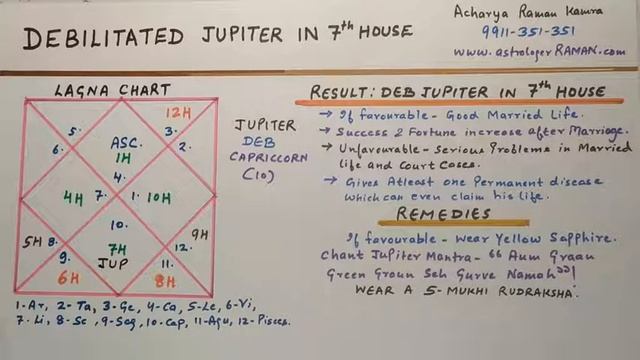 DEBILITATED JUPITER IN 7th HOUSE
Acharya Raman Kamra
9911-351-351
www.astrologerRAMAN.com
LAGNA CHART
12H
5.
3.
ASC.
1H
6.
2.
4.
4H
7.
1.
10H
10.
5H
8.
7H
9H
12.
9.
JUP
11.
6H
8H
JUPITER
DEB
CAPRICCORN
(10)
1-Ar, 2-Ta, 3-Ge, 4-Ca, 5-Le, 6-Vi,
7-Li, 8-Sc, 9-Sag, 10-Cap, 11-Aqu, 12-Pisces.
RESULT: DEB JUPITER IN 7th HOUSE
→ If favourable - Good Married Life.
→ Success & Fortune increase after Marriage.
→ Unfavourable - Serious Problems in Married
life and Court Cases.
→ Gives Atleast one Permanent disease
which can even claim his life.
REMEDIES
If favourable - Wear Yellow Sapphire.
Chant Jupiter Mantra - "Aum Graan
Green Groun Seh Gurve Namah"
WEAR A 5-MUKHI RUDRAKSHA.